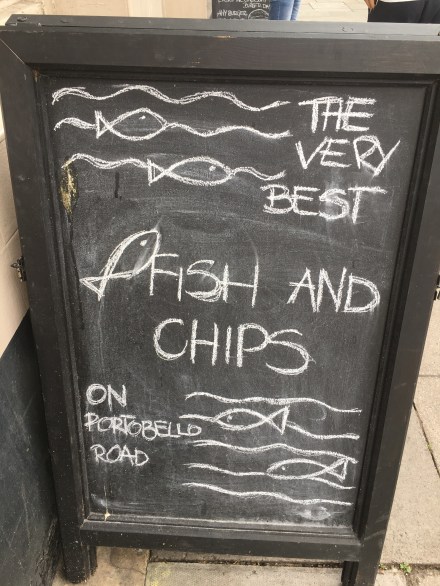 THE
VERY
BEST
FISH AND
CHIPS
ON
PORTOBELLO
ROAD